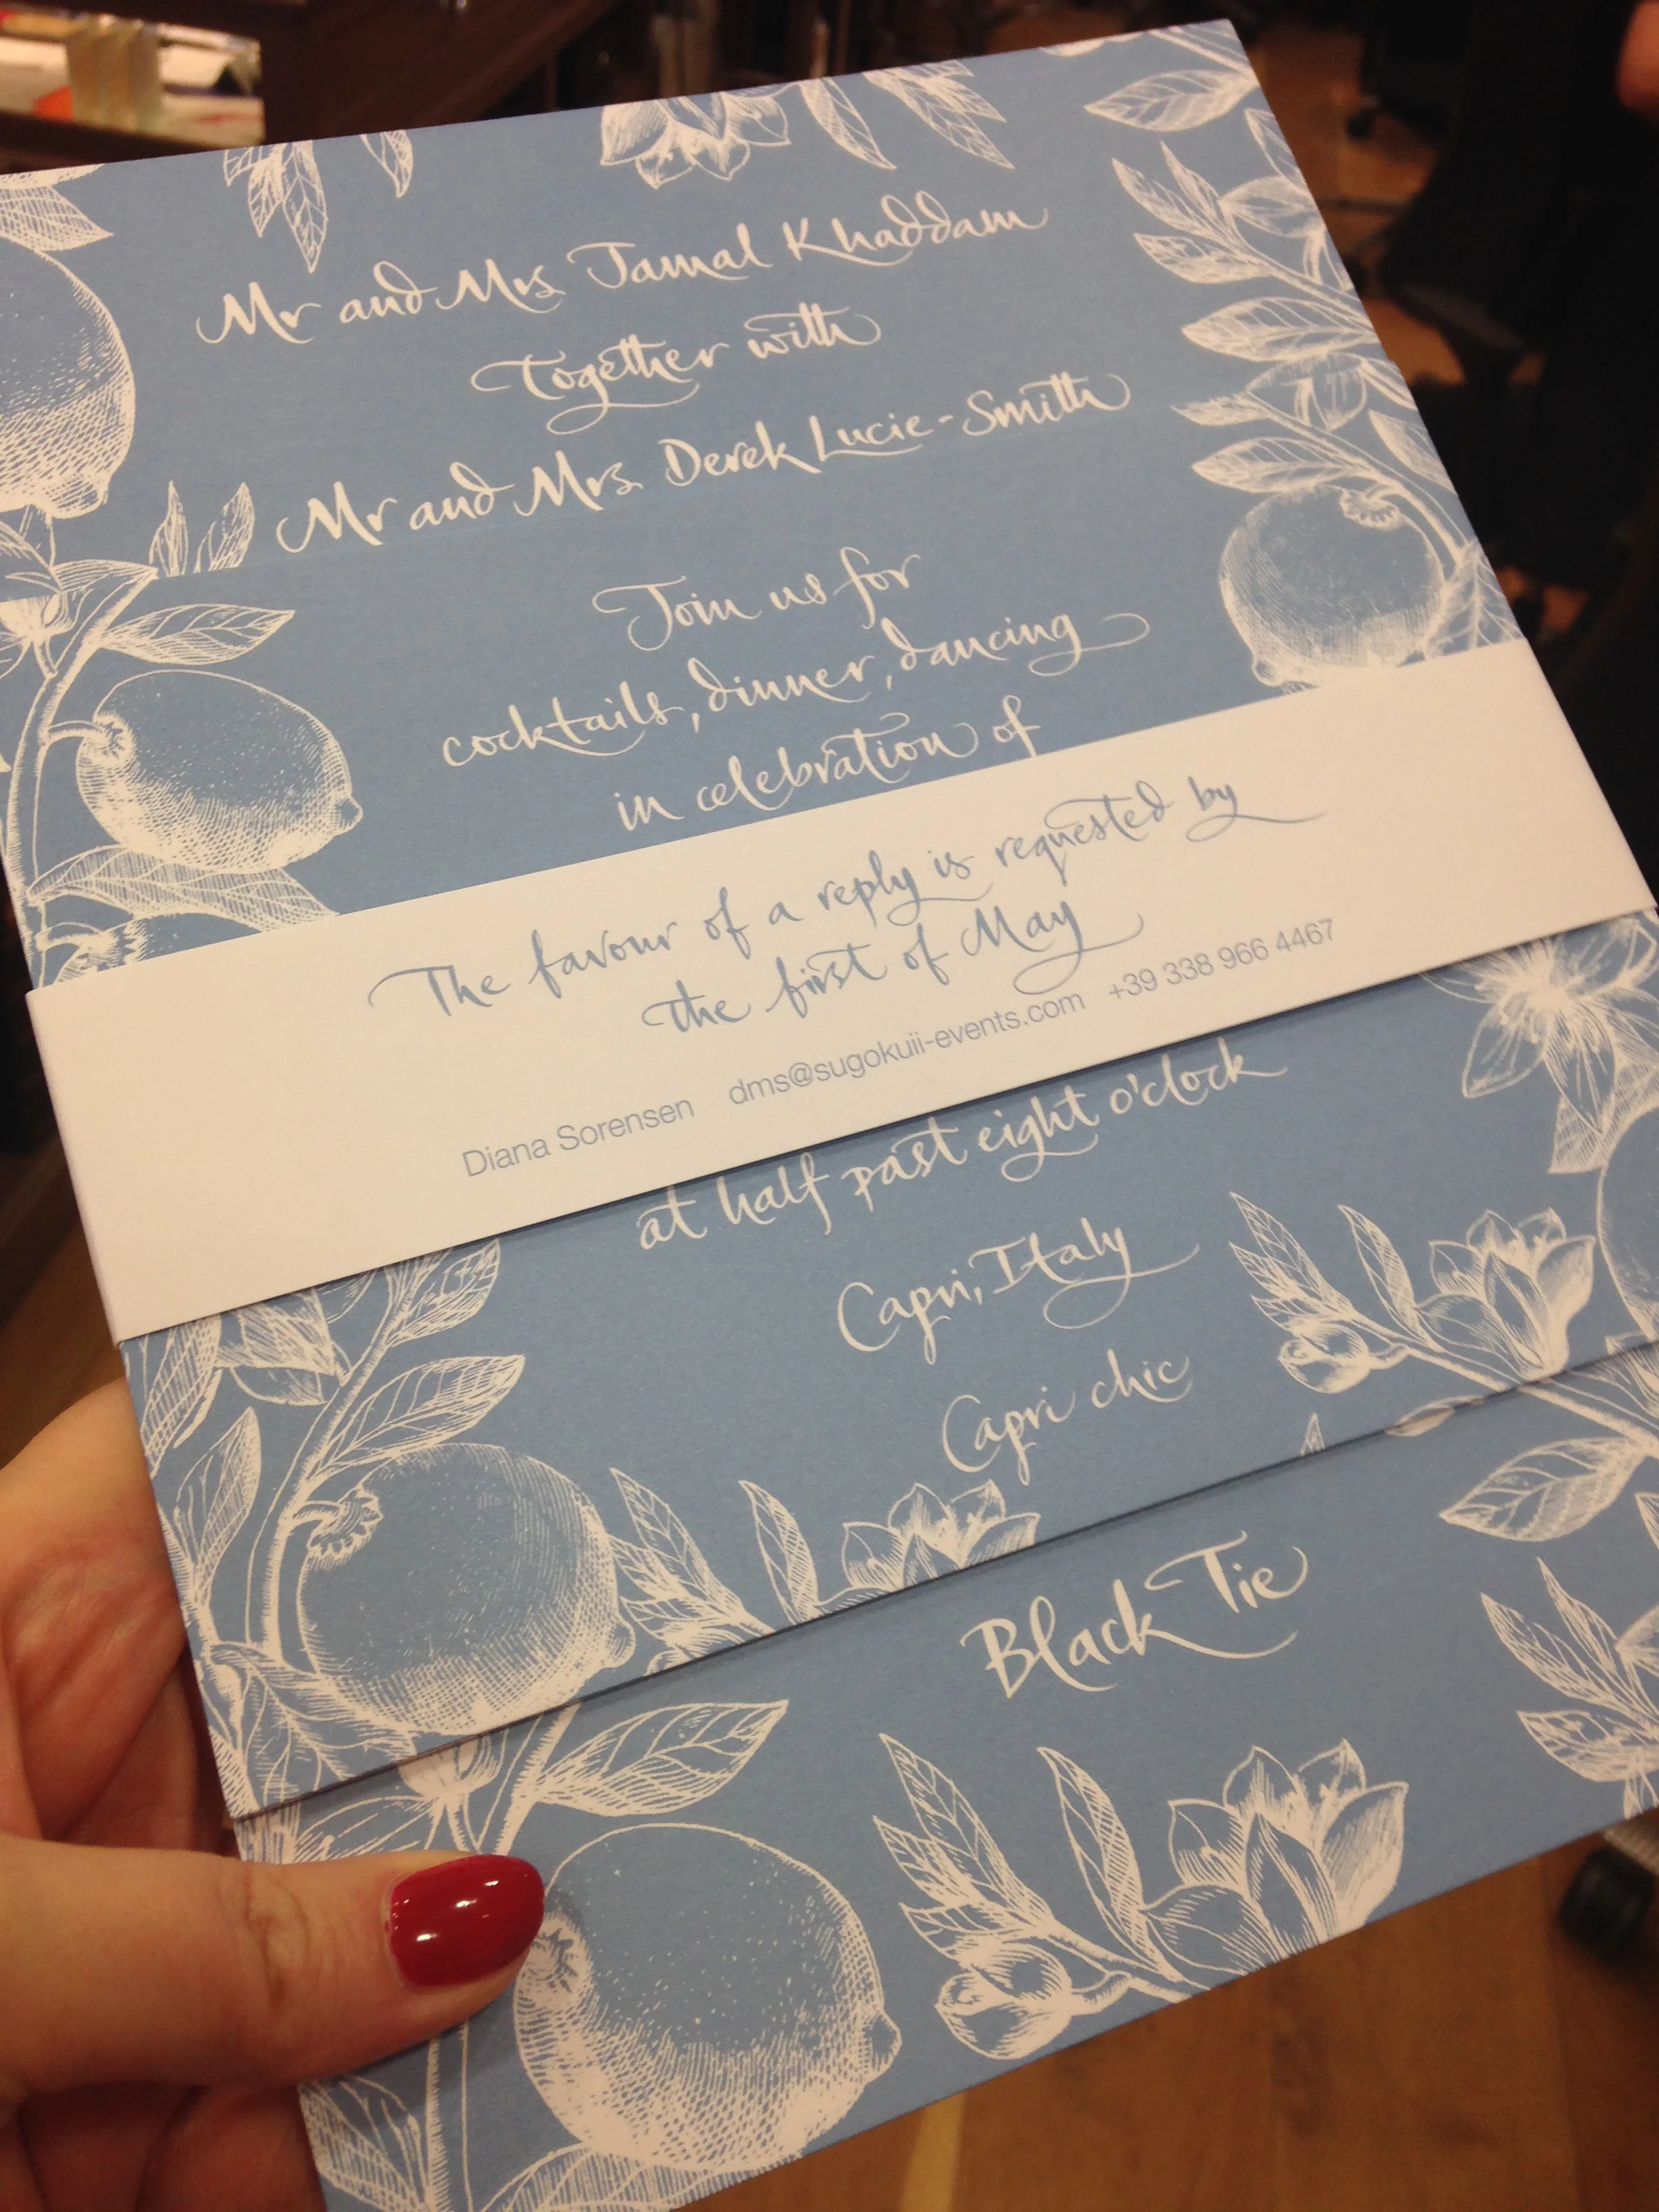 Mr and Mrs Jamal Khaddam
Together with
Mr and Mrs Derek Lucie-Smith
Join us for
cocktails, dinner, dancing
in celebration of
The favour of a reply is requested by
the first of May
Diana Sorensen dms@sugokuii-events.com +39 338 966 4467
at half past eight o'clock
Capri, Italy
Capri chic
Black Tie